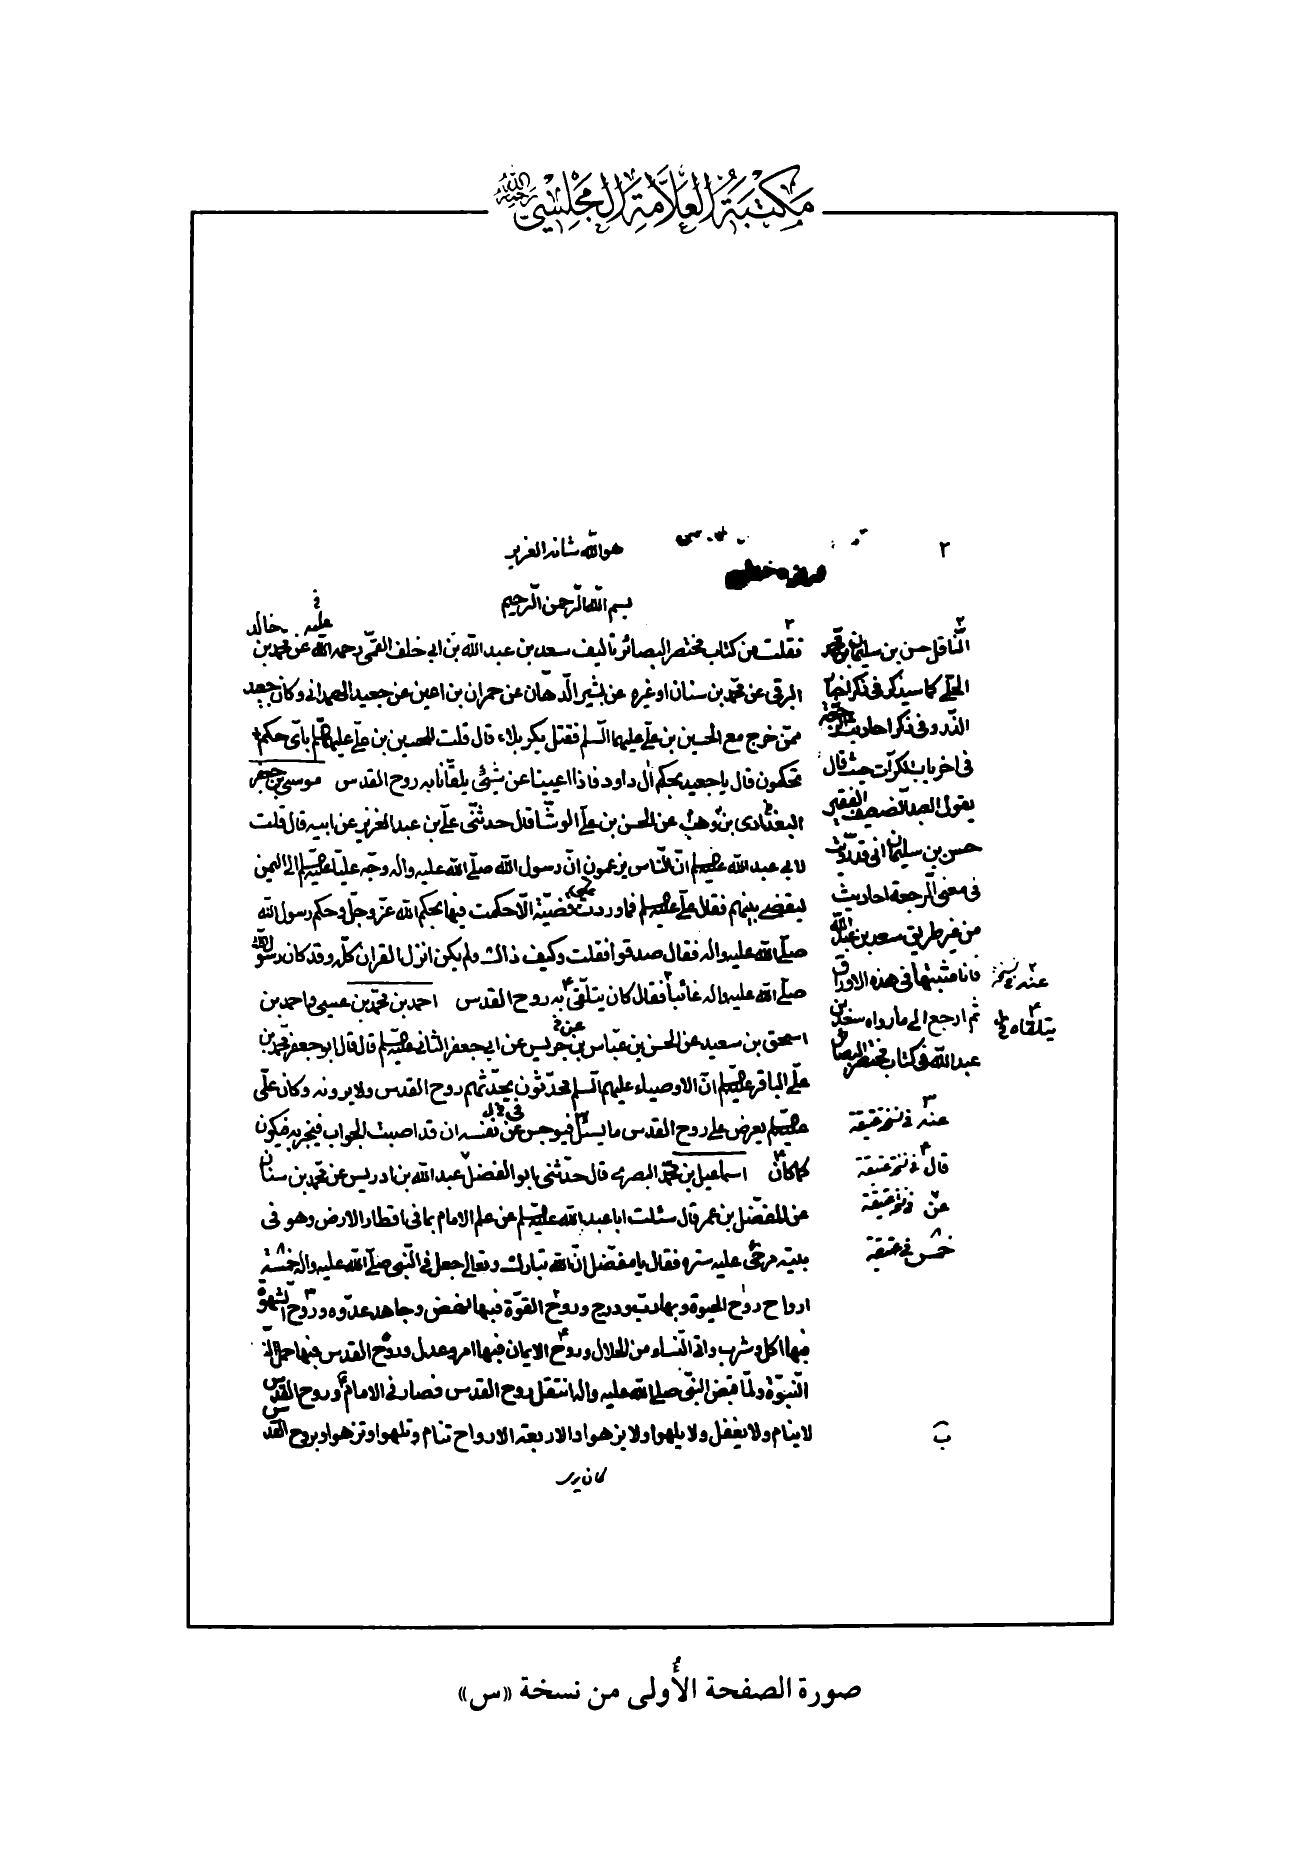 مكتبة العلامة المجلسي رحمه الله
٢
هو الله شانه العزيز
بسم الله الرحمن الرحيم
نقلت من كتاب مختصر البصائر تاليف سعد بن عبد الله بن ابي خلف القمي رحمه الله عن محمد بن خالد
البرقي عن محمد بن سنان او غيره عن بشير الدهان عن حمران بن اعين عن جعيد الهمداني وكان جعيد
ممن خرج مع الحسين بن علي عليهما السلم فقتل بكربلاء قال قلت للحسين بن علي عليهما باي حكم
تحكمون قال يا جعيد بحكم آل داود فاذا اعيينا عن شيئ يلقانا به روح القدس موسى بن جعفر
البغدادي بن وهب عن الحسن بن علي الوشا قال حدثني علي بن عبد العزيز عن ابيه قال قلت
لابي عبد الله ان الناس يزعمون ان رسول الله صلي الله عليه واله وجه عليا الى اليمن
ليقضي بينهم فقال علي فما وردت قضية الا حكمت فيها بحكم الله عز وجل وحكم رسول الله
صلي الله عليه واله فقال صدقوا فقلت وكيف ذاك ولم يكن انزل القران كله وقد كان رسول الله
صلي الله عليه واله غائبا فقال كان يتلقى به روح القدس احمد بن محمد بن عيسى واحمد بن
اسحق بن سعيد عن الحسن بن عباس بن جريس عن ابي جعفر الثاني قال قال ابو جعفر محمد بن
علي الباقر ان الاوصياء عليهم السلم محدثون يحدثهم روح القدس ولا يرونه وكان علي
يعرض على روح القدس ما يسئل فيوجس عن نفسه ان قد اصبت الجواب فيخبر به فيكون
كما كان اسماعيل بن محمد البصري قال حدثني ابو الفضل عبد الله بن ادريس عن محمد بن سنان
عن المفضل بن عمر قال سئلت ابا عبد الله عن علم الامام بما في اقطار الارض وهو في
بيته مرخى عليه ستره فقال يا مفضل ان الله تبارك وتعالى جعل في النبي صلي الله عليه واله خمسة
ارواح روح الحيوة وبها دب ودرج وروح القوة فبها نهض وجاهد عدوه وروح الشهوة
فبها اكل وشرب واتى النساء من الحلال وروح الايمان فبها امر وعدل وروح القدس فبها حمل
النبوة ولما قبض النبي صلي الله عليه واله انتقل روح القدس فصار في الامام وروح القدس
لا ينام ولا يغفل ولا يلهوا ولا يزهوا والاربعة الارواح تنام وتلهوا وتزهوا وبروح القدس
كان يرى
الناقل حسن بن سليمان بن محمد
الحلي كما سيذكر في ذكر اخبار
الذر وفي ذكر احاديث الرجعة
في اخر باب الكرات حيث قال
يقول العبد الضعيف الفقير
حسن بن سليمان اني قد رويت
في معنى الرجعة احاديث
من غير طريق سعد بن عبد الله
فانا مثبتها في هذه الاوراق
ثم ارجع الى ما رواه سعد بن
عبد الله في كتاب مختصر البصائر
عنه نسخة
يتلقاه
عنه في نسخة عتيقة
قال في نسخة عتيقة
عن في نسخة عتيقة
خمس في عتيقة
صورة الصفحة الأولى من نسخة «س»